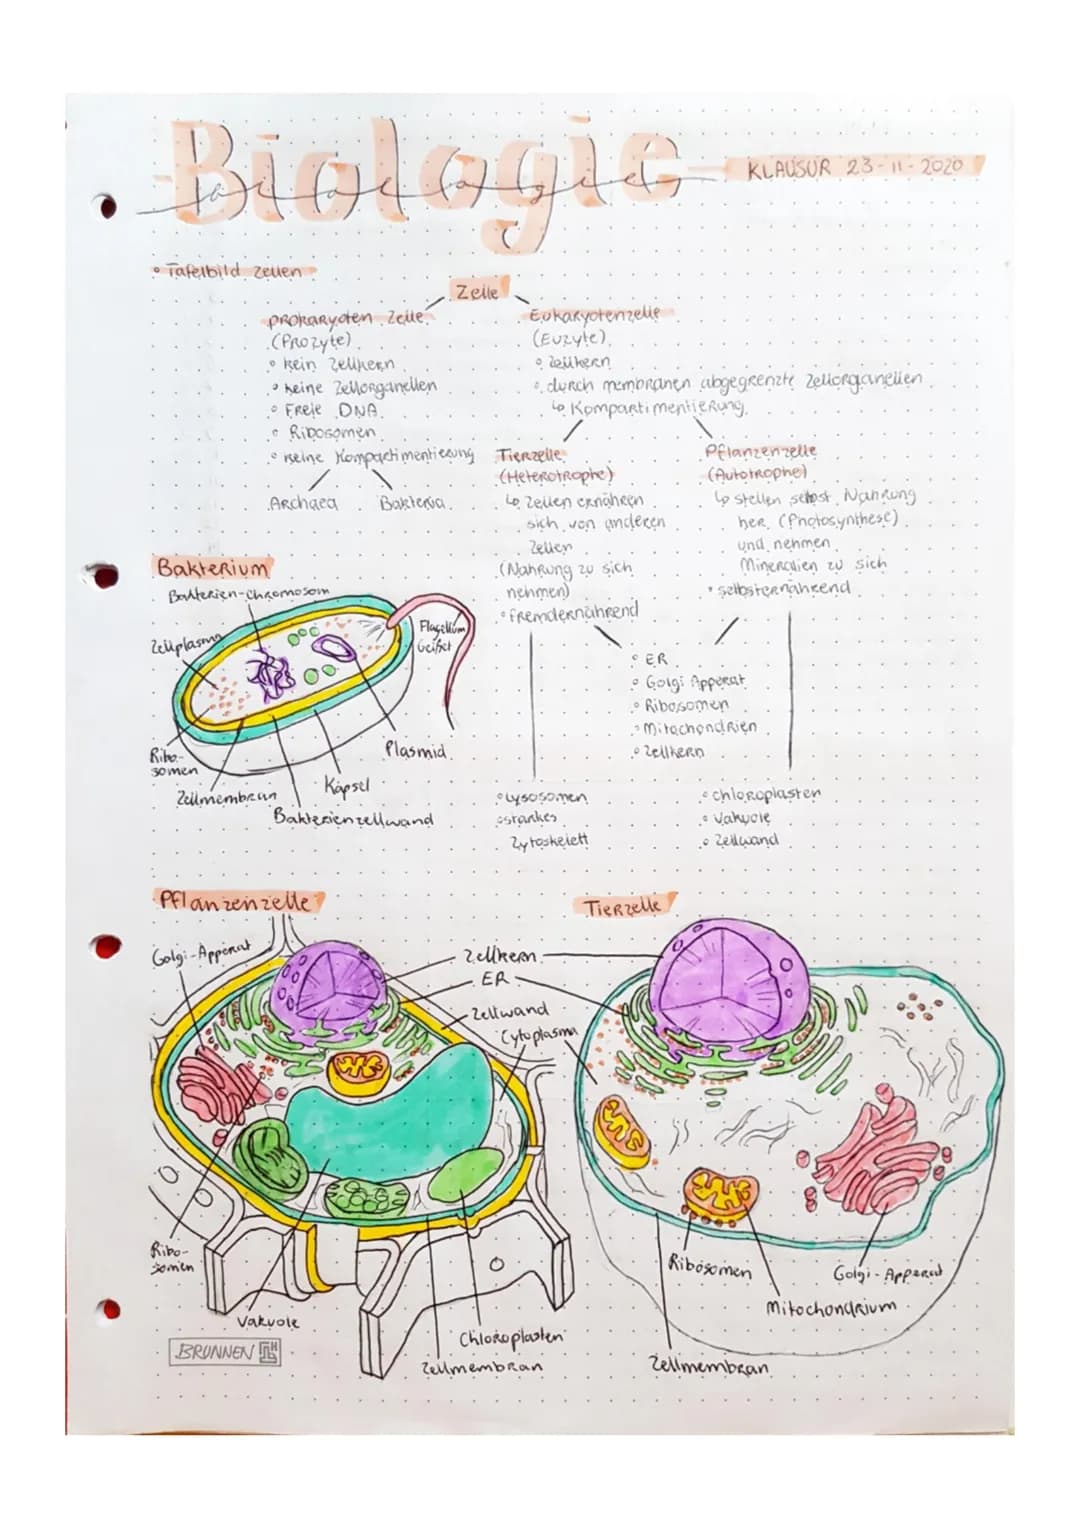 Biologie
KLAUSUR 23-11-2020
° Tafelbild Zellen
Zelle
Prokaryoten Zelle
(Prozyte)
° kein Zellkern
° keine Zellorganellen
° Freie DNA
° Ribosomen
° keine Kompartimentierung
Archaea
Bakteria
Eukaryotenzelle
(Euzyte)
° Zellkern
° durch membranen abgegrenzte Zellorganellen
↳ Kompartimentierung
Tierzelle
(Heterotrophe)
↳ Zellen ernähren
sich von anderen
Zellen
(Nahrung zu sich
nehmen)
° fremdernährend
Pflanzenzelle
(Autotrophe)
↳ stellen selbst Nahrung
her (Photosynthese)
und nehmen
Mineralien zu sich
° selbsternährend
° ER
° Golgi Apperat
° Ribosomen
° Mitochondrien
° Zellkern
° Lysosomen
° starkes
Zytoskelett
° Chloroplasten
° Vakuole
° Zellwand
Bakterium
Bakterien-Chromosom
Zellplasma
Flagellum
Geißel
Ribo-
somen
Zellmembran
Bakterienzellwand
Kapsel
Plasmid
Pflanzenzelle
Golgi-Apperat
Zellkern
ER
Zellwand
Cytoplasma
Ribo-
somen
Vakuole
Chloroplasten
Zellmembran
BRUNNEN
Tierzelle
Ribosomen
Golgi-Apperat
Mitochondrium
Zellmembran